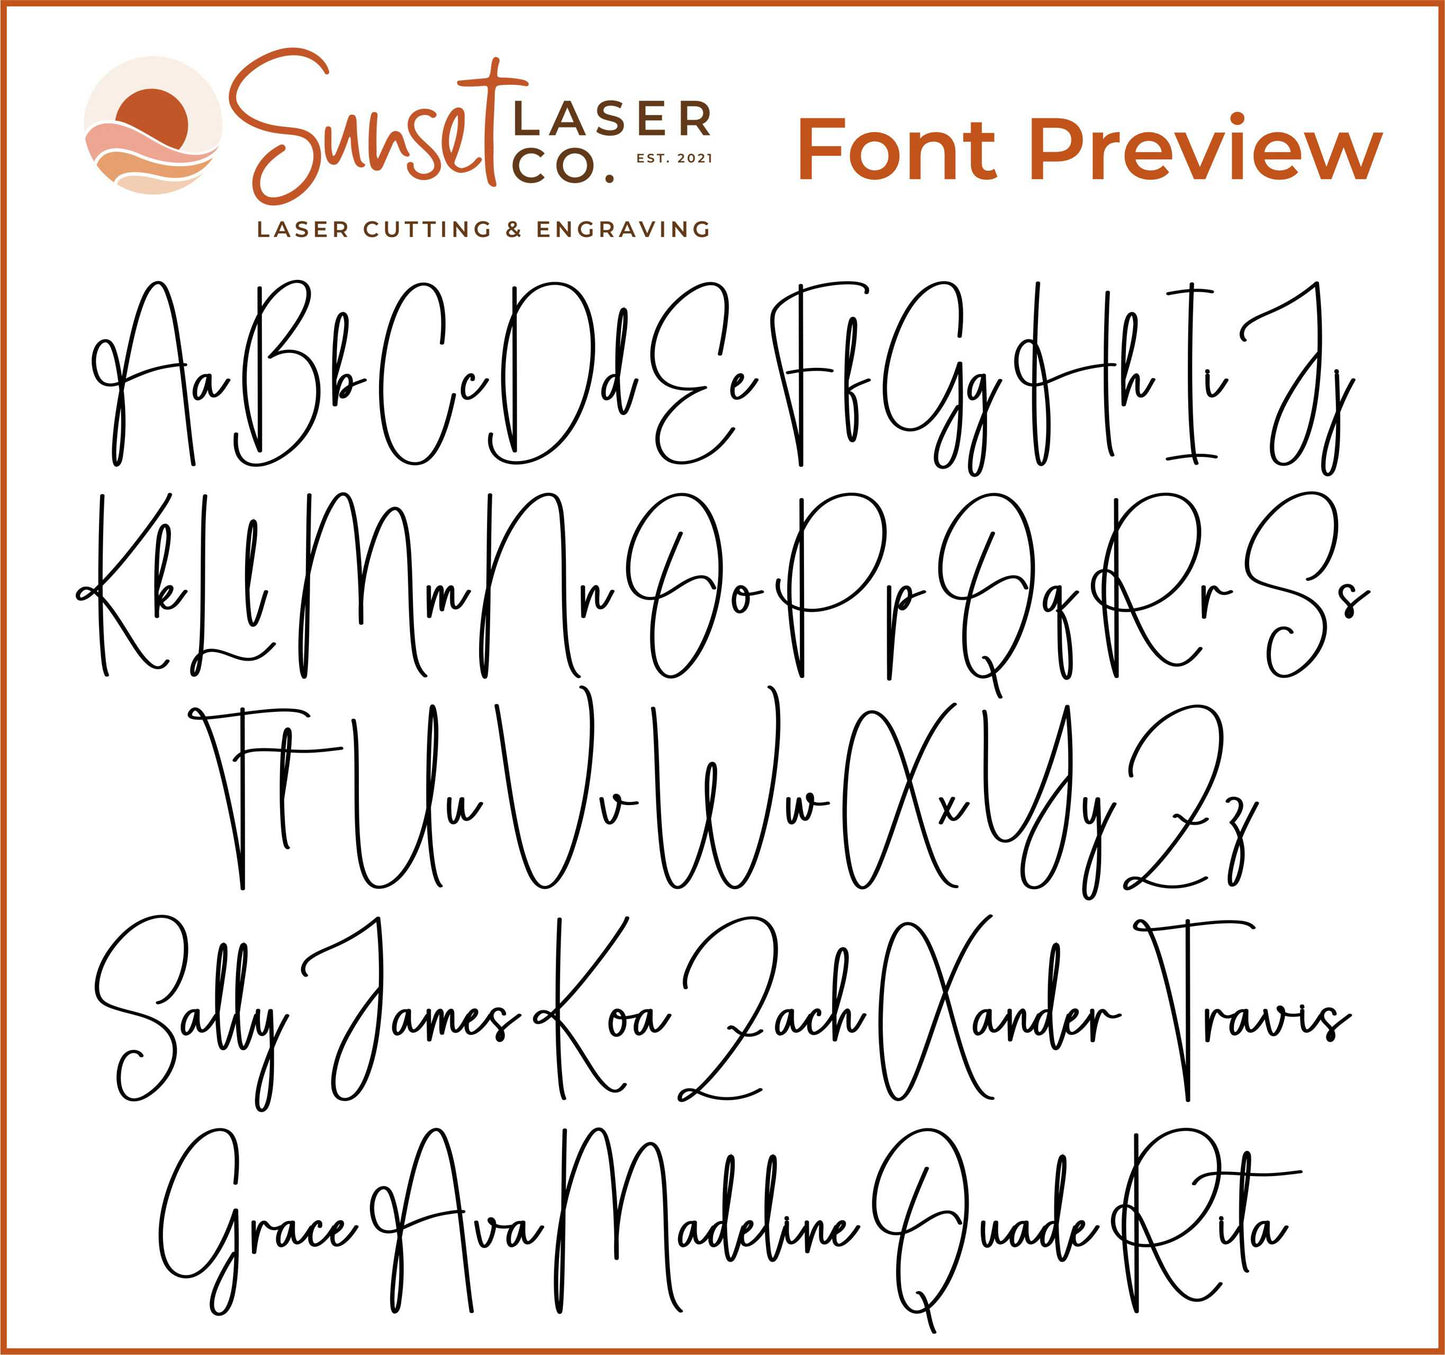 Sunset LASER CO. EST. 2021
LASER CUTTING & ENGRAVING
Font Preview
Aa Bb Cc Dd Ee Ff Gg Hh Ii Jj
Kk Ll Mm Nn Oo Pp Qq Rr Ss
Tt Uu Vv Ww Xx Yy Zz
Sally James Koa Zach Xander Travis
Grace Ava Madeline Quade Rita